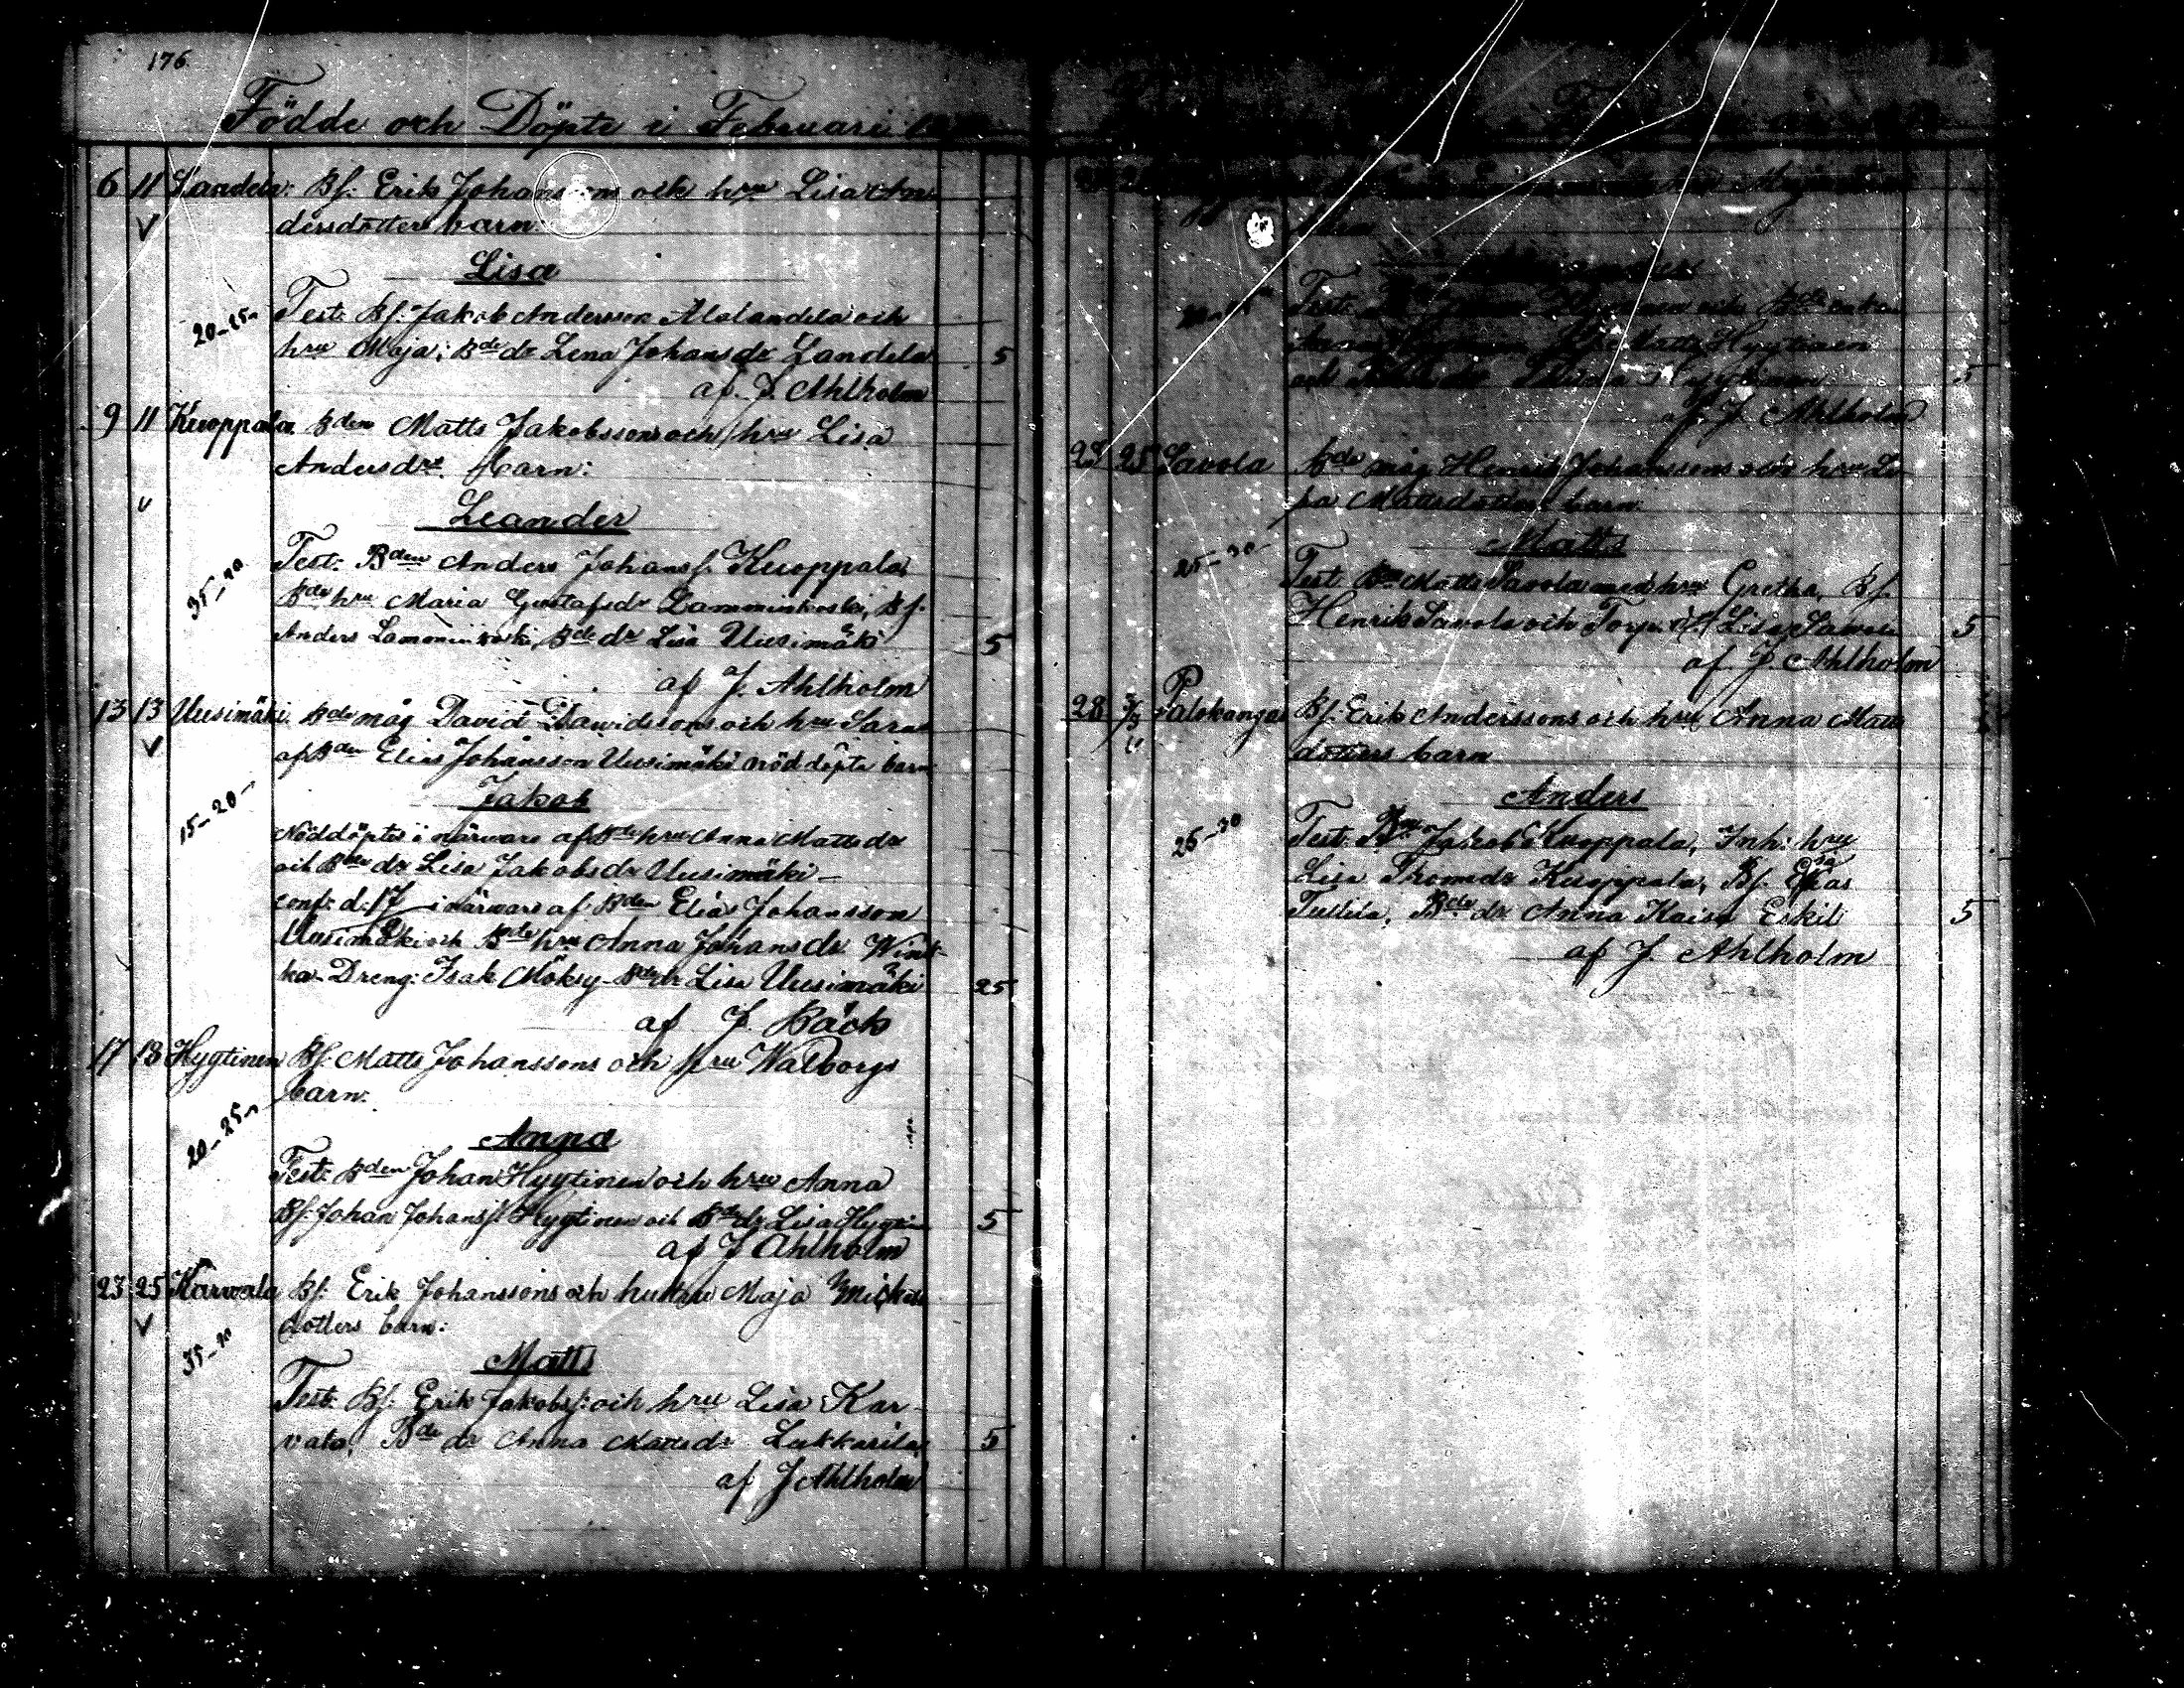 176
Födde och Döpte i Februari
6 11 Landela: Bs: Erik Johanssons och hru Lisa An
dersdotters barn.
Lisa
20-25-
Test: Bs. Jakob Andersson Alalandela och
hru Maja; Bde dr Lena Johansdr Landela 5
af J. Ahlholm
9 11 Kuoppala Bden Matts Jakobssons och hru Lisa
Andersdrs. barn:
Leander
35-40
Test: Bden Anders Johanss. Kuoppala,
Bde hru Maria Gustafsdr Lamminkoski, Bs.
Anders Lamminkoski, Bde dr Lisa Uusimäki 5
af J. Ahlholm
13 13 Uusimäki Bde måg David Davidssons och hru Saras
af Bden Elias Johansson Uusimäki nöddöpte barn
Jakob
15-20-
Nöddöptes i närvaro af Bde hru Anna Mattsdr
och Bde dr Lisa Jakobsdr Uusimäki -
conf: d: 17 i närvaro af Bden Elias Johansson
Uusimäki och Bde hru Anna Johansdr Wink-
ka- Dreng: Isak Möksy- Bde dr Lisa Uusimäki 25
af J. Bäck
17 18 Hyytinen Bs. Matts Johanssons och hru Walborgs
barn:
20-25-
Anna
Test: Bden Johan Hyytinen och hru Anna
Bs: Johan Johanss: Hyytinen och Bde dr Lisa Hyytin 5
af J Ahlholm
23 25 Karvala Bs: Erik Johanssons och hustru Maja Mickels
dotters barn:
35-40
Matts
Test: Bs: Erik Jakobss: och hru Lisa Kar-
vala, Bde dr Anna Mattsdr Lukkarila, 5
af J Ahlholm
Test:
Matts Hyytinen
och 5
af J. Ahlholm
23 25 Savola Bde måg Henrik Johanssons och hru Li
sa Mattsdotters barn.
Matts
25-30-
Test: Bden Matts Savola med hru Gretha, Bs.
Henrik Savola och Torp. dr Lisa Savola 5
af J Ahlholm
28 3/3 Palokangas Bs. Erik Anderssons och hru Anna Matts
dotters barn
Anders
25-30
Test. Bden Jakob Kuoppala, Inh: hru
Lisa Thomsdr Kuoppala, Bs. Esaias
Bde dr Anna Kaisa Eskil 5
af J. Ahlholm